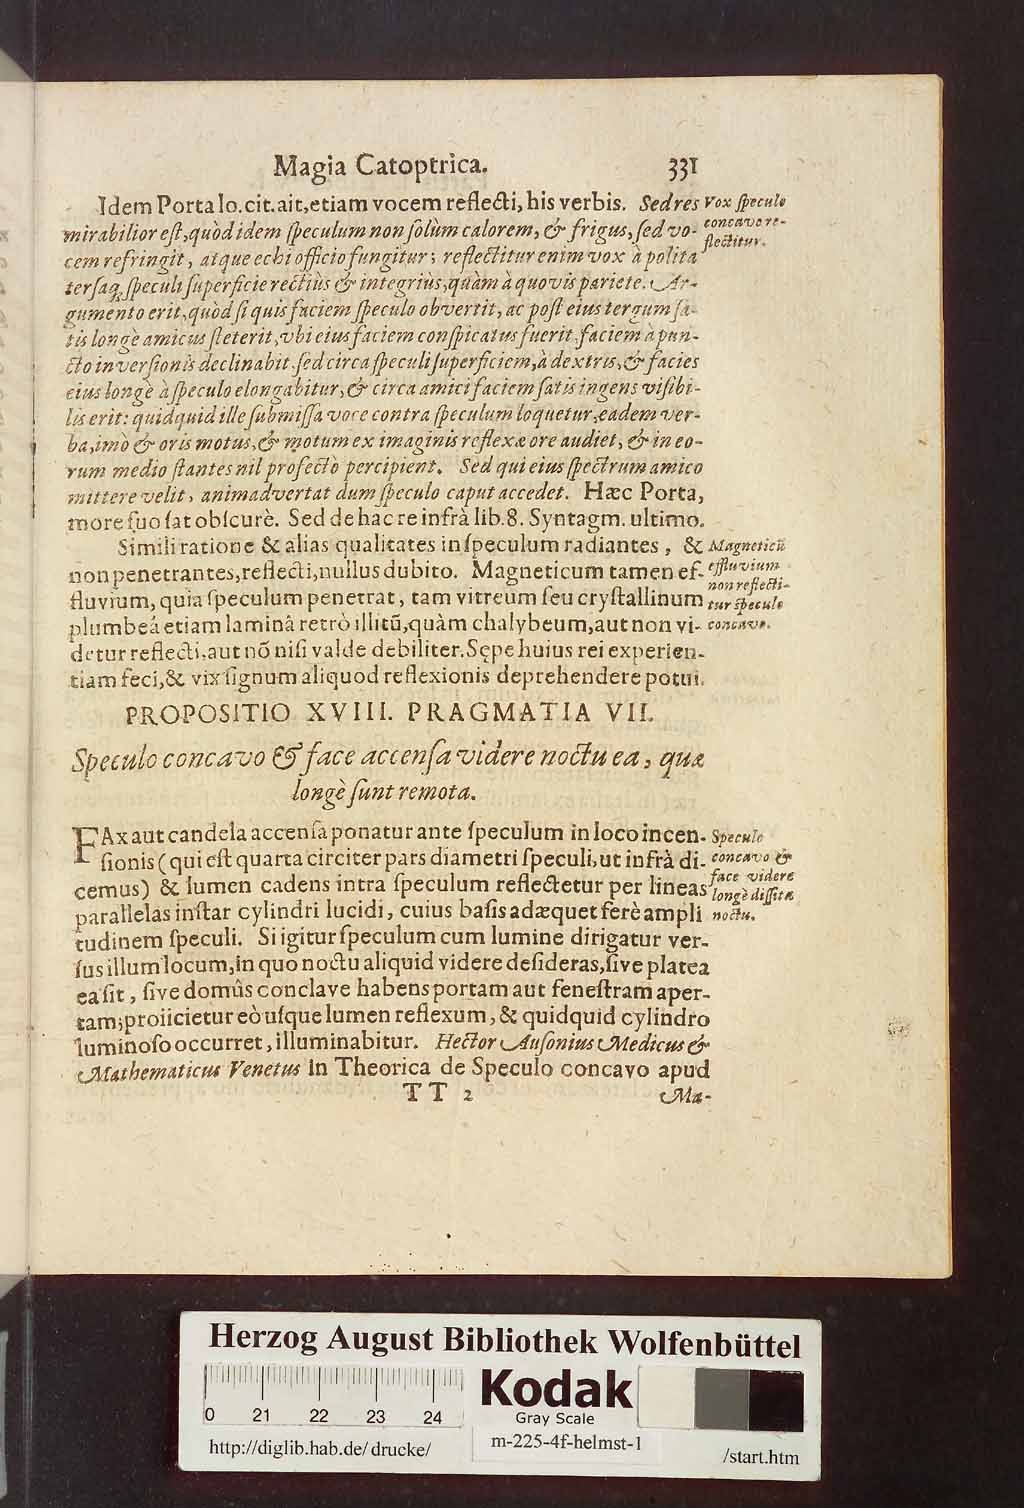 Magia Catoptrica. 331
Idem Porta lo. cit. ait, etiam vocem reflecti, his verbis. Sed res
mirabilior est, quòd idem speculum non solùm calorem, & frigus, sed vo-
cem refringit, atque echi officio fungitur; reflectitur enim vox à polita
tersaq; speculi superficie rectiùs & integriùs, quàm à quovis pariete. Ar-
gumento erit, quòd si quis faciem speculo obvertit, ac post eius tergum sa-
tis longè amicus steterit, vbi eius faciem conspicatus fuerit, faciem à pun-
cto inversionis declinabit, sed circa speculi superficiem, à dextris, & facies
eius longè à speculo elongabitur, & circa amici faciem satis ingens visibi-
lis erit: quidquid ille submissa voce contra speculum loquetur, eadem ver-
ba, imò & oris motus, & motum ex imaginis reflexæ ore audiet, & in eo-
rum medio stantes nil profectò percipient. Sed qui eius spectrum amico
mittere velit, animadvertat dum speculo caput accedet. Hæc Porta,
more suo sat obscurè. Sed de hac re infrà lib. 8. Syntagm. ultimo.
Vox speculo
concavo re-
flectitur.
Simili ratione & alias qualitates in speculum radiantes, &
non penetrantes, reflecti, nullus dubito. Magneticum tamen ef-
fluvium, quia speculum penetrat, tam vitreum seu crystallinum
plumbeâ etiam laminâ retrò illitũ, quàm chalybeum, aut non vi-
detur reflecti, aut nõ nisi valde debiliter. Sępe huius rei experien-
tiam feci, & vix signum aliquod reflexionis deprehendere potui.
Magneticũ
effluvium
non reflecti-
tur speculo
concavo.
PROPOSITIO XVIII. PRAGMATIA VII.
Speculo concavo & face accensa videre noctu ea, quæ
longè sunt remota.
FAx aut candela accensa ponatur ante speculum in loco incen-
sionis (qui est quarta circiter pars diametri speculi, ut infrà di-
cemus) & lumen cadens intra speculum reflectetur per lineas
parallelas instar cylindri lucidi, cuius basis adæquet ferè ampli
tudinem speculi. Si igitur speculum cum lumine dirigatur ver-
sus illum locum, in quo noctu aliquid videre desideras, sive platea
ea sit, sive domûs conclave habens portam aut fenestram aper-
tam; proiicietur eò usque lumen reflexum, & quidquid cylindro
luminoso occurret, illuminabitur. Hector Ausonius Medicus &
Mathematicus Venetus in Theorica de Speculo concavo apud
Speculo
concavo &
face videre
longè dissita
noctu.
TT 2 Ma-
Herzog August Bibliothek Wolfenbüttel
0 21 22 23 24
Kodak
Gray Scale
http://diglib.hab.de/drucke/
m-225-4f-helmst-1
/start.htm